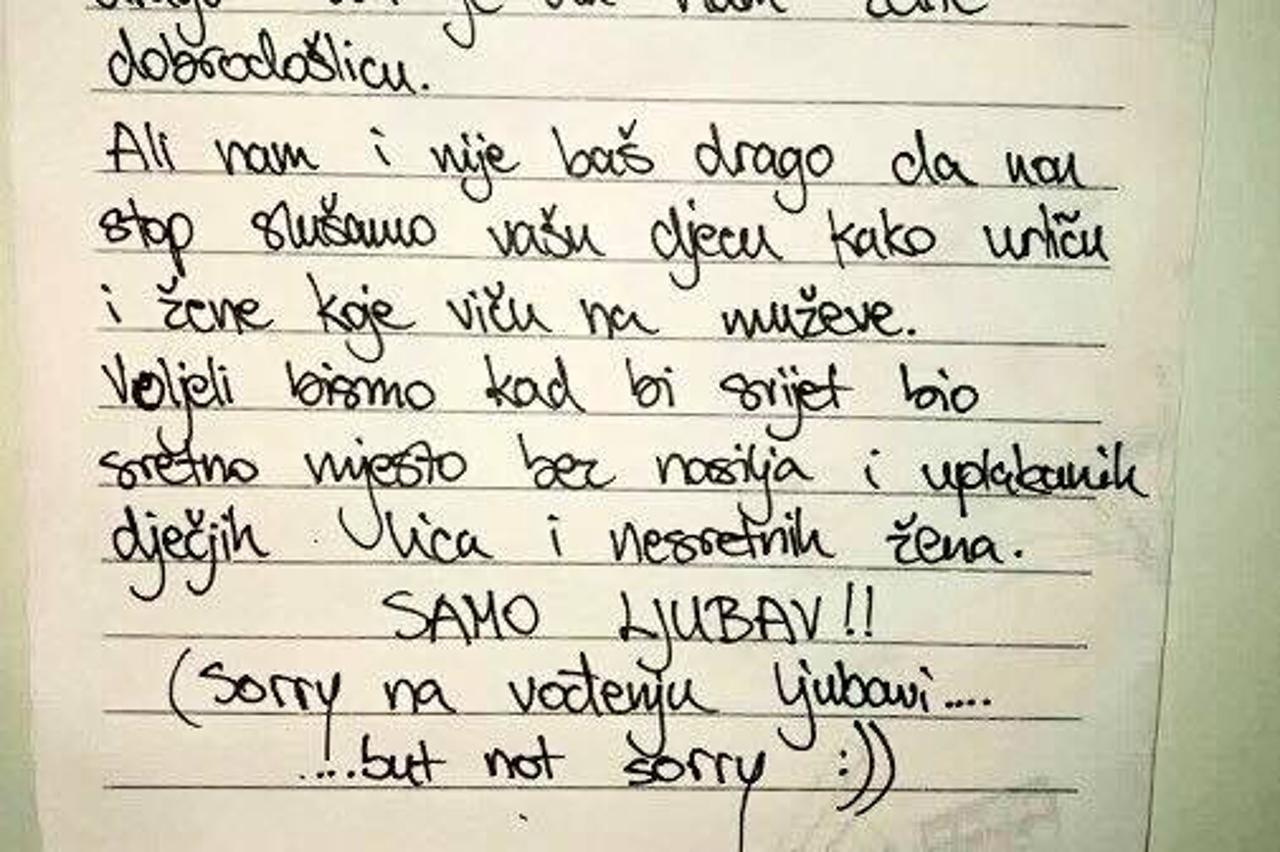 drago
dobrodošlicu.
Ali nam i nije baš drago da non
stop slušamo vašu djecu kako urliču
i žene koje viču na muževe.
Voljeli bismo kad bi svijet bio
sretno mjesto bez nasilja i uplakanih
dječjih lica i nesretnih žena.
SAMO LJUBAV!!
(Sorry na vođenju ljubavi....
....but not sorry :))